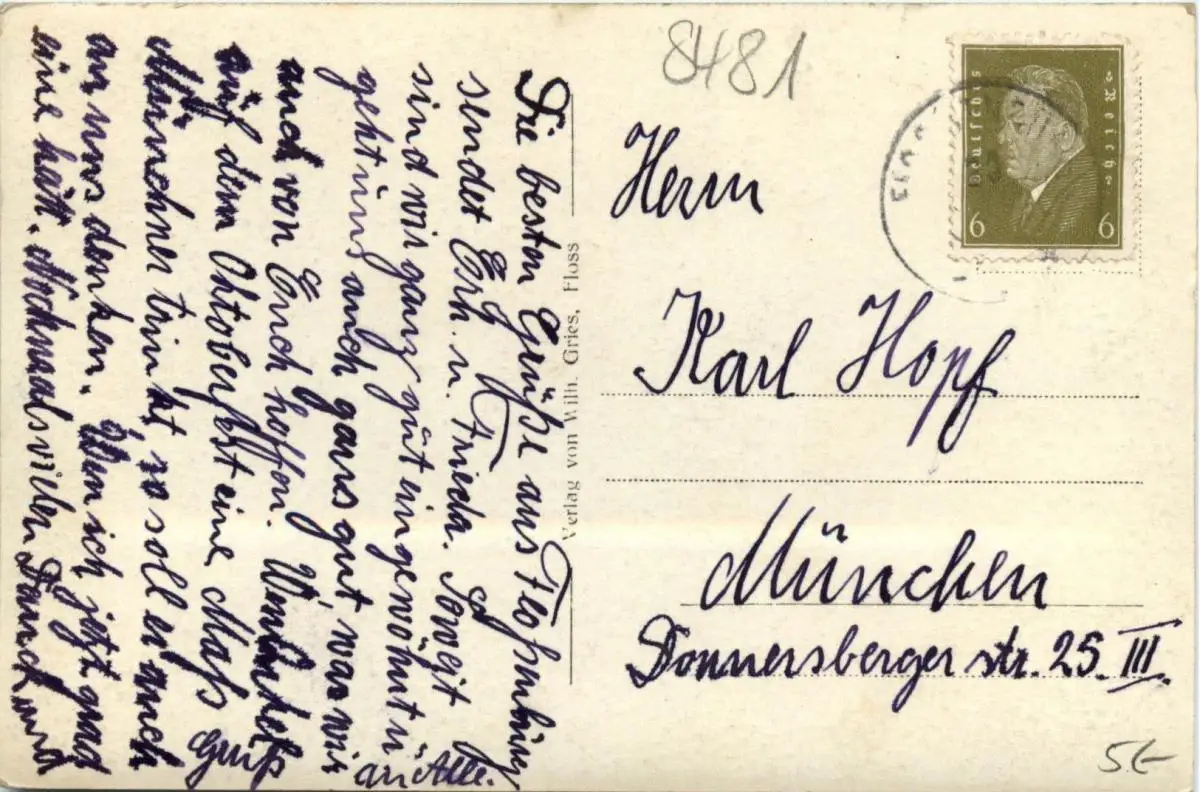 Die besten Grüße aus Flossenbürg
sendet Erh. u. Frieda. Soweit
sind wir ganz gut eingewöhnt u
geht uns auch ganz gut was wir
auch von Euch hoffen. Wenn
auf dem Oktoberfest eine Maß
Münchner trinkt, so soll er auch
an uns denken. Wenn ich jetzt grad
eine hätt. Nochmals vielen Dank und
Gruß
an Alle.
Verlag von Wilh. Gries, Floss
8481
Deutsches Reich
6 6
Herrn
Karl Hopf
München
Donnersbergerstr. 25. III.
5€